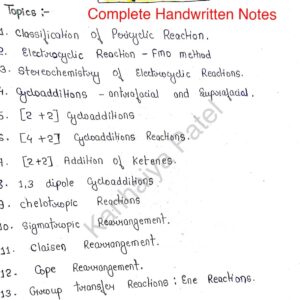 Topics :- Complete Handwritten Notes
1. Classification of Pericyclic Reaction.
2. Electrocyclic Reaction - FMO method
3. Stereochemistry of Electrocyclic Reactions.
4. Cycloadditions - antrafacial and Suprafacial.
5. [2+2] Cycloadditions
6. [4+2] Cycloadditions Reactions.
7. [2+2] Addition of Ketenes.
8. 1,3 dipole Cycloadditions
9. chelotropic Reactions
10. Sigmatropic Rearrangement.
11. Claisen Rearrangement.
12. Cope Rearrangement.
13. Group transfer Reactions : Ene Reactions.
Kanhaiya Patel